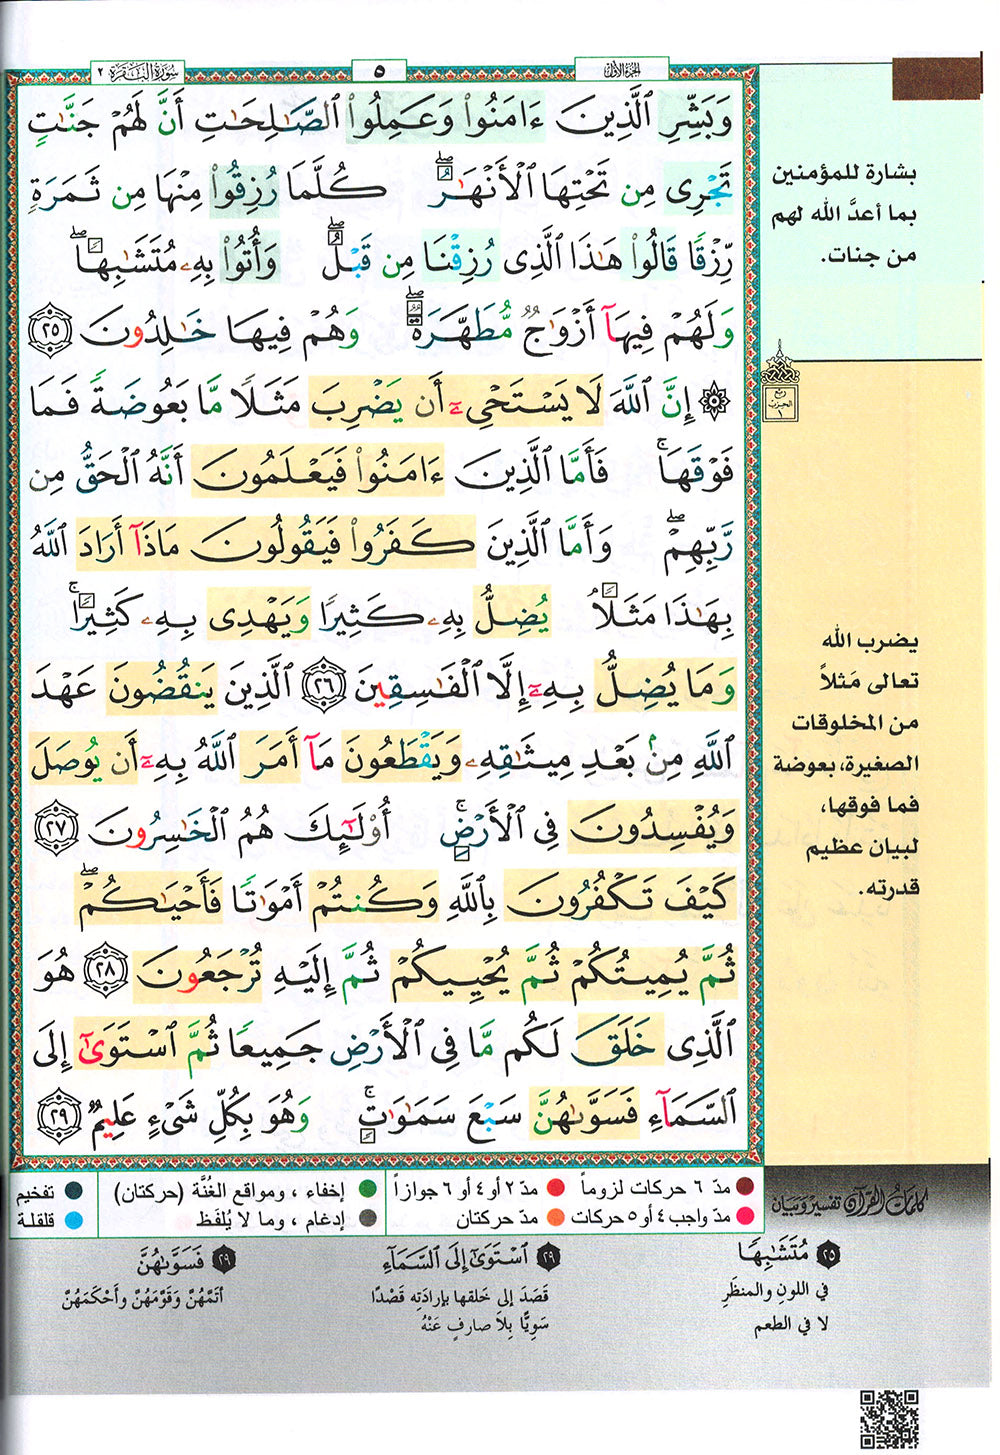 الجزء الأول
٥
سورة البقرة ٢
وَبَشِّرِ ٱلَّذِينَ ءَامَنُوا۟ وَعَمِلُوا۟ ٱلصَّـٰلِحَـٰتِ أَنَّ لَهُمْ جَنَّـٰتٍ
تَجْرِى مِن تَحْتِهَا ٱلْأَنْهَـٰرُ ۖ كُلَّمَا رُزِقُوا۟ مِنْهَا مِن ثَمَرَةٍ
رِّزْقًا قَالُوا۟ هَـٰذَا ٱلَّذِى رُزِقْنَا مِن قَبْلُ ۖ وَأُتُوا۟ بِهِۦ مُتَشَـٰبِهًا ۖ
وَلَهُمْ فِيهَآ أَزْوَٰجٌ مُّطَهَّرَةٌ ۖ وَهُمْ فِيهَا خَـٰلِدُونَ ٢٥
۞ إِنَّ ٱللَّهَ لَا يَسْتَحْىِۦٓ أَن يَضْرِبَ مَثَلًا مَّا بَعُوضَةً فَمَا
فَوْقَهَا ۚ فَأَمَّا ٱلَّذِينَ ءَامَنُوا۟ فَيَعْلَمُونَ أَنَّهُ ٱلْحَقُّ مِن
رَّبِّهِمْ ۖ وَأَمَّا ٱلَّذِينَ كَفَرُوا۟ فَيَقُولُونَ مَاذَآ أَرَادَ ٱللَّهُ
بِهَـٰذَا مَثَلًا ۘ يُضِلُّ بِهِۦ كَثِيرًا وَيَهْدِى بِهِۦ كَثِيرًا ۚ
وَمَا يُضِلُّ بِهِۦٓ إِلَّا ٱلْفَـٰسِقِينَ ٢٦ ٱلَّذِينَ يَنقُضُونَ عَهْدَ
ٱللَّهِ مِنۢ بَعْدِ مِيثَـٰقِهِۦ وَيَقْطَعُونَ مَآ أَمَرَ ٱللَّهُ بِهِۦٓ أَن يُوصَلَ
وَيُفْسِدُونَ فِى ٱلْأَرْضِ ۚ أُو۟لَـٰٓئِكَ هُمُ ٱلْخَـٰسِرُونَ ٢٧
كَيْفَ تَكْفُرُونَ بِٱللَّهِ وَكُنتُمْ أَمْوَٰتًا فَأَحْيَـٰكُمْ ۖ
ثُمَّ يُمِيتُكُمْ ثُمَّ يُحْيِيكُمْ ثُمَّ إِلَيْهِ تُرْجَعُونَ ٢٨ هُوَ
ٱلَّذِى خَلَقَ لَكُم مَّا فِى ٱلْأَرْضِ جَمِيعًا ثُمَّ ٱسْتَوَىٰٓ إِلَى
ٱلسَّمَآءِ فَسَوَّىٰهُنَّ سَبْعَ سَمَـٰوَٰتٍ ۚ وَهُوَ بِكُلِّ شَىْءٍ عَلِيمٌ ٢٩
بشارة للمؤمنين
بما أعدَّ الله لهم
من جنات.
ربع
الحزب
١
يضرب الله
تعالى مَثلاً
من المخلوقات
الصغيرة، بعوضة
فما فوقها،
لبيان عظيم
قدرته.
مدّ ٦ حركات لزوماً
مدّ ٢ أو ٤ أو ٦ جوازاً
إخفاء ، ومواقع الغُنَّة (حركتان)
تفخيم
مدّ واجب ٤ أو ٥ حركات
مدّ حركتان
إدغام ، وما لا يُلفَظ
قلقلة
كلمات القرآن تفسير وبيان
٢٥ مُتَشَـٰبِهًا
في اللون والمنظَرِ
لا في الطعم
٢٩ ٱسْتَوَىٰٓ إِلَى ٱلسَّمَآءِ
قَصَدَ إلى خَلقها بإرادَتِه قَصْدًا
سَوِيًّا بِلاَ صارفٍ عَنْهُ
٢٩ فَسَوَّىٰهُنَّ
أتَمَّهُنَّ وَقَوَّمَهُنَّ وأَحْكَمَهُنَّ